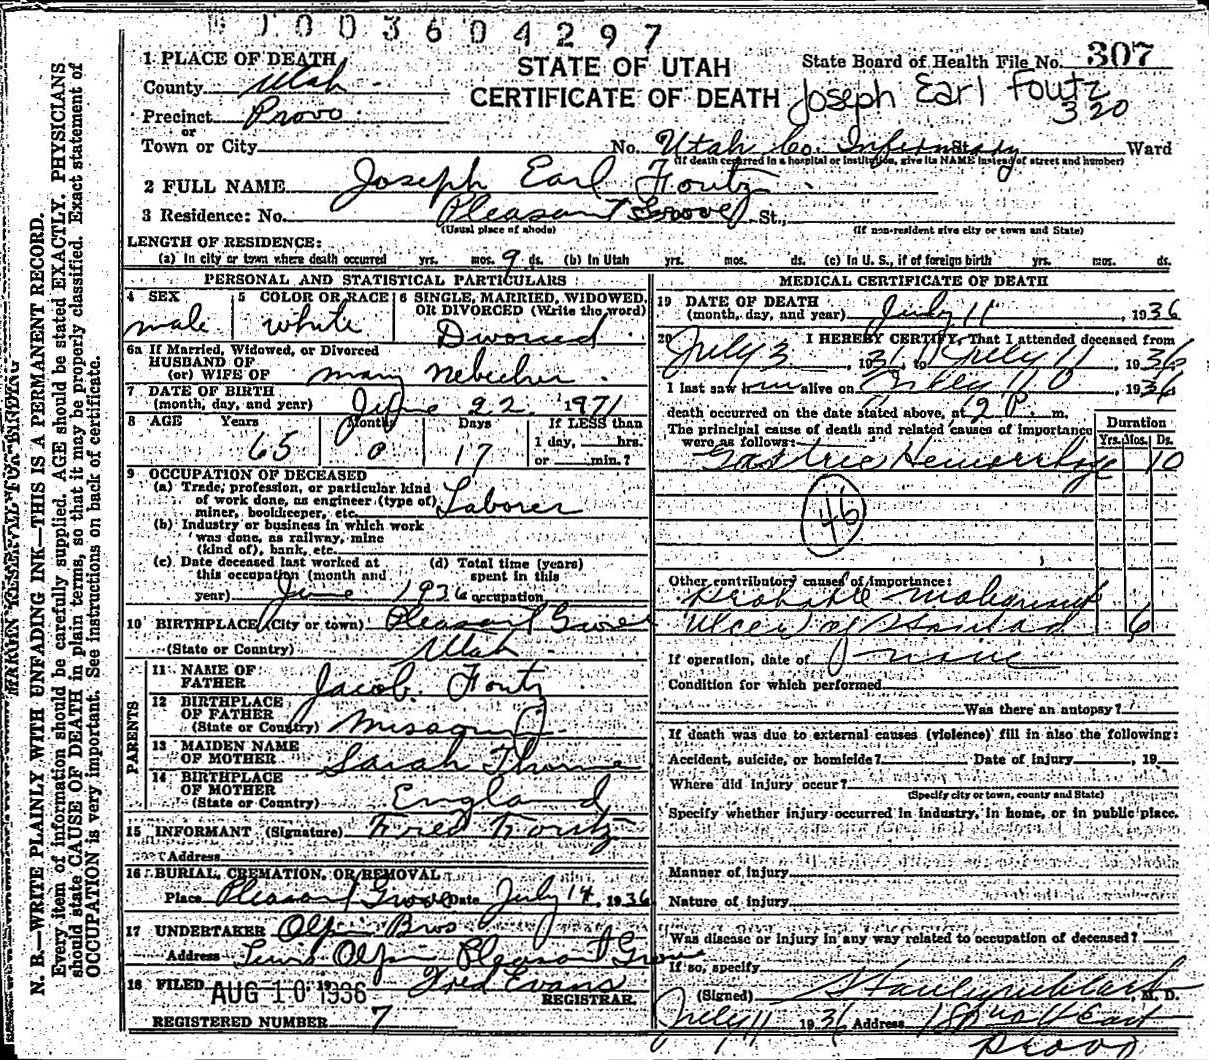 1003604297
1 PLACE OF DEATH
STATE OF UTAH
State Board of Health File No. 307
County Utah
CERTIFICATE OF DEATH
Joseph Earl Foutz
320
Precinct Provo
or
Town or City No. Utah Co. Infirmary St. Ward
(If death occurred in a hospital or institution, give its NAME instead of street and number)
2 FULL NAME Joseph Earl Foutz
3 Residence: No. Pleasant Grove St.,
(Usual place of abode) (If non-resident give city or town and State)
LENGTH OF RESIDENCE:
(a) In city or town where death occurred yrs. mos. 9 ds. (b) In Utah yrs. mos. ds. (c) In U. S., if of foreign birth yrs. mos. ds.
PERSONAL AND STATISTICAL PARTICULARS
4 SEX 5 COLOR OR RACE 6 SINGLE, MARRIED, WIDOWED,
OR DIVORCED (Write the word)
male white Divorced
6a If Married, Widowed, or Divorced
HUSBAND OF
(or) WIFE OF Mary
7 DATE OF BIRTH
(month, day, and year) June 22. 1971
8 AGE Years Months Days If LESS than
1 day, hrs.
65 0 17 or min.?
9 OCCUPATION OF DECEASED
(a) Trade, profession, or particular kind
of work done, as engineer (type of)
miner, bookkeeper, etc. Laborer
(b) Industry or business in which work
was done, as railway, mine
(kind of), bank, etc.
(c) Date deceased last worked at (d) Total time (years)
this occupation (month and spent in this
year) June 1936 occupation
10 BIRTHPLACE (City or town) Pleasant Grove
(State or Country) Utah
PARENTS
11 NAME OF
FATHER Jacob Foutz
12 BIRTHPLACE
OF FATHER
(State or Country) Missouri
13 MAIDEN NAME
OF MOTHER Sarah Thorne
14 BIRTHPLACE
OF MOTHER
(State or Country) England
15 INFORMANT (Signature) Fred Foutz
Address
16 BURIAL, CREMATION, OR REMOVAL
Place Pleasant Grove Date July 14, 1936
17 UNDERTAKER Olpin Bros
Address Lewis Olpin Pleasant Grove
18 FILED AUG 10 1936 19 Fred Evans
REGISTRAR.
REGISTERED NUMBER 7
MEDICAL CERTIFICATE OF DEATH
19 DATE OF DEATH
(month, day, and year) July 11, 1936
20 I HEREBY CERTIFY, That I attended deceased from
July 3, 1936 to July 11, 1936
I last saw him alive on July 11, 1936
death occurred on the date stated above, at 12 P. m.
The principal cause of death and related causes of importance
were as follows:
Duration
Yrs. Mos. Ds.
Gastric Hemorrhage 10
46
Other contributory causes of importance:
Probable malignant
Ulcer of Stomach 6
If operation, date of none
Condition for which performed
Was there an autopsy?
If death was due to external causes (violence) fill in also the following:
Accident, suicide, or homicide? Date of injury , 19
Where did injury occur?
(Specify city or town, county and State)
Specify whether injury occurred in industry, in home, or in public place.
Manner of injury
Nature of injury
Was disease or injury in any way related to occupation of deceased?
If so, specify
(Signed) , M. D.
July 11 1936 Address East
Provo
MARGIN RESERVED FOR BINDING
N. B.—WRITE PLAINLY WITH UNFADING INK—THIS IS A PERMANENT RECORD.
Every item of information should be carefully supplied. AGE should be stated EXACTLY. PHYSICIANS
should state CAUSE OF DEATH in plain terms, so that it may be properly classified. Exact statement of
OCCUPATION is very important. See instructions on back of certificate.